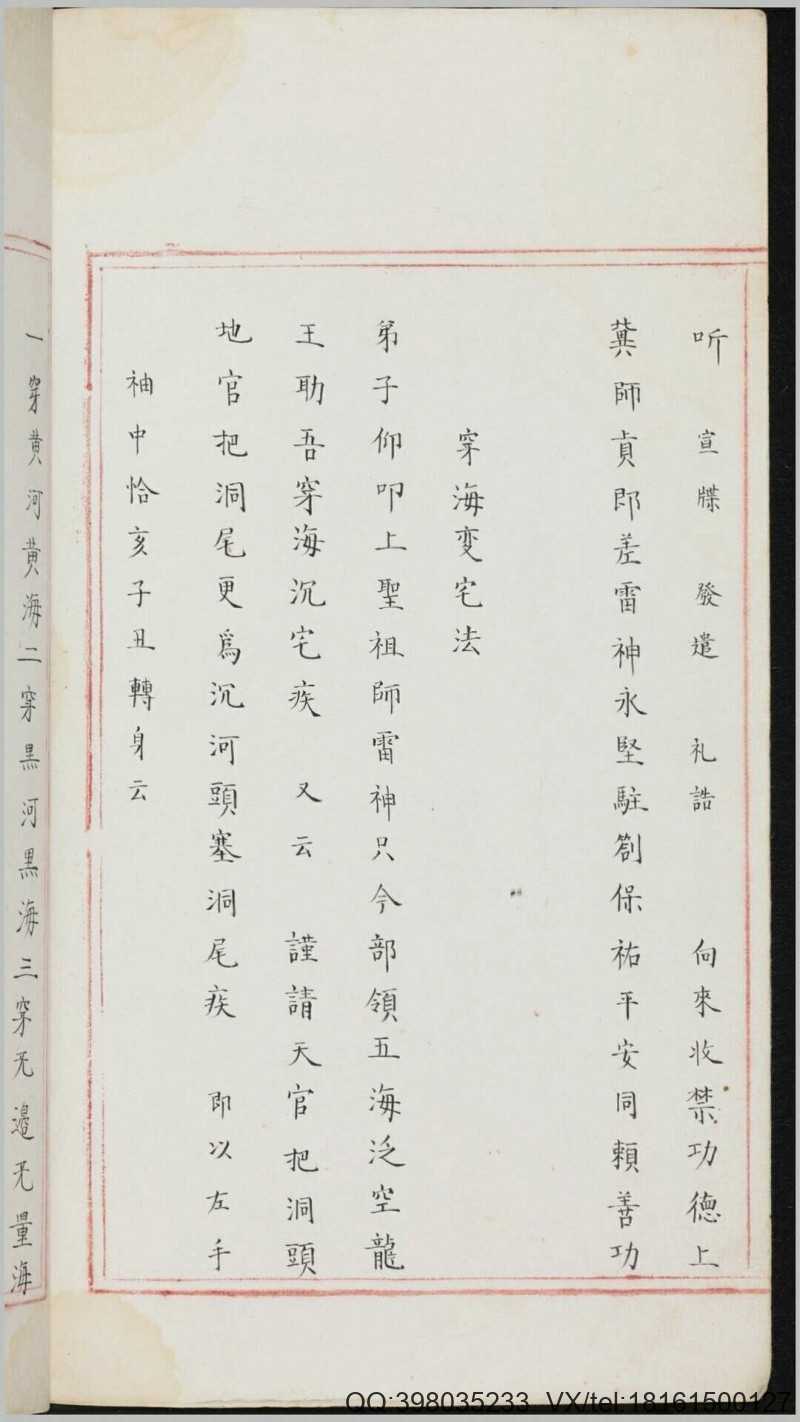 听 宣牒 發遣 礼誥 向來收禁功德上
冀師貞郎差雷神永堅駐劄保祐平安同賴善功
穿海变宅法
弟子仰叩上聖祖師雷神只今部領五海泛空龍
王助吾穿海沉宅疾 又云 謹請天官把洞頭
地官把洞尾更爲沉河頭塞洞尾疾 即以左手
袖中恰亥子丑轉身云
一穿黄河黄海二穿黑河黑海三穿无邉无量海
QQ:398035233 VX/tel:18161500127